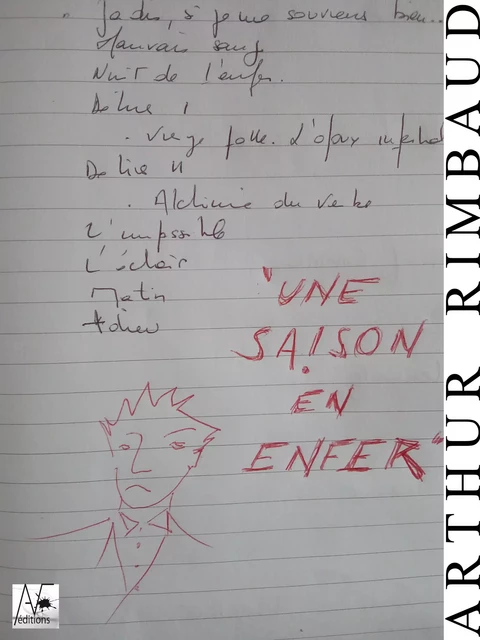 " Jadis, si je me souviens bien...
Mauvais sang
Nuit de l'enfer.
Délire I
. Vierge folle. L'époux infernal
Délire II
. Alchimie du verbe
L'impossible
L'éclair
Matin
Adieu
"UNE
SAISON
EN
ENFER"
ARTHUR RIMBAUD
AF
éditions